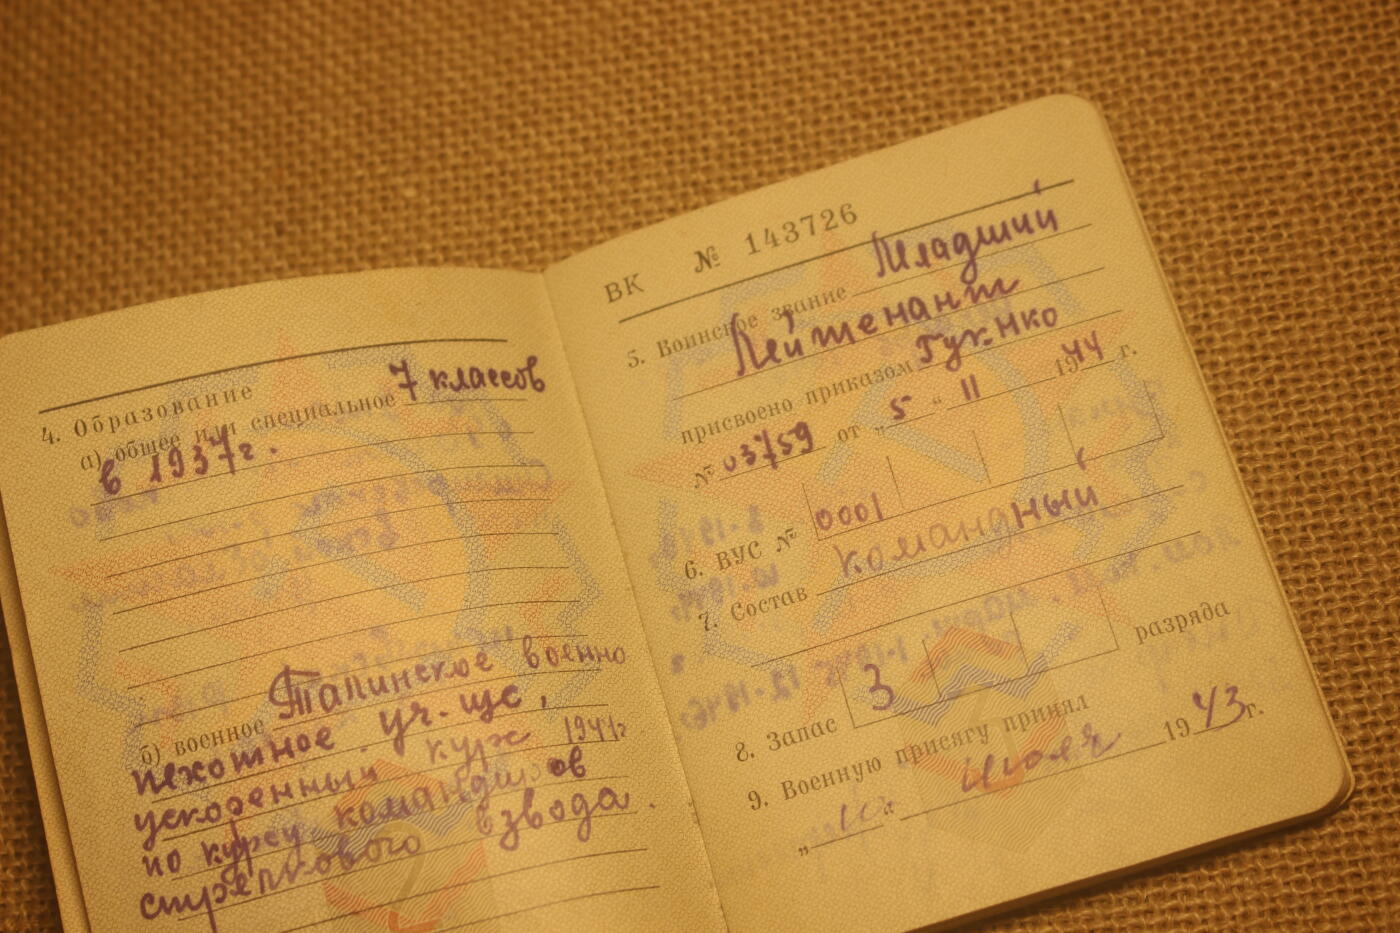 4. Образование
а) общее или специальное 7 классов
в 1937г.
б) военное Талинское военно
пехотное уч-ще,
ускоренный курс 1944г
по курсу командиров
стрелкового взвода.
ВК № 143726
5. Воинское звание Младший
Лейтенант
присвоено приказом НКО
№ 03759 от „5“ 11 1944 г.
6. ВУС № 0001
7. Состав командный
8. Запас 3 разряда
9. Военную присягу принял
„ “ июля 1943г.